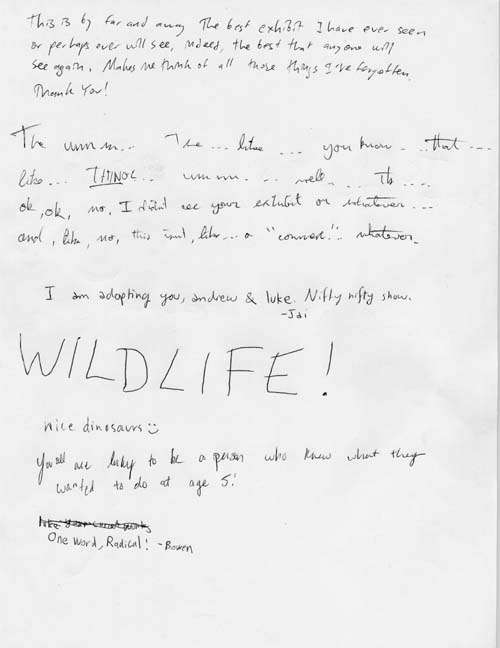 This is by far and away The best exhibit I have ever seen
or perhaps ever will see, indeed, the best that anyone will
see again. Makes me think of all those things I've forgotten.
Thank You!
The umm... The... like ... you know... that...
like... THING... umm... well... It...
ok, ok, no, I didn't see your exhibit or whatever...
and, like, no, this isn't, like... a "comment"... whatever.
I am adopting you, andrew & luke. Nifty nifty show.
-Jai
WILDLIFE!
nice dinosaurs☺
You all are lucky to be a person who knew what they
wanted to do at age 5!
One word, Radical! -Bowen